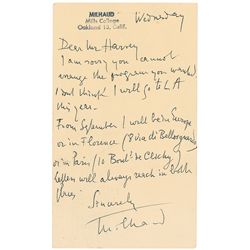 MILHAUD
Mills College
Oakland 13, Calif.
Wednesday
Dear Mr Harvey
I am sorry you cannot
arrange the program you wanted
I don't think I will go to LA
this year.
From September I will be in Europe
or in Florence (8 via di Bellosguardo
or in Paris (10 Boulᵈ de Clichy)
letters will always reach in both
places.
Sincerely
Milhaud